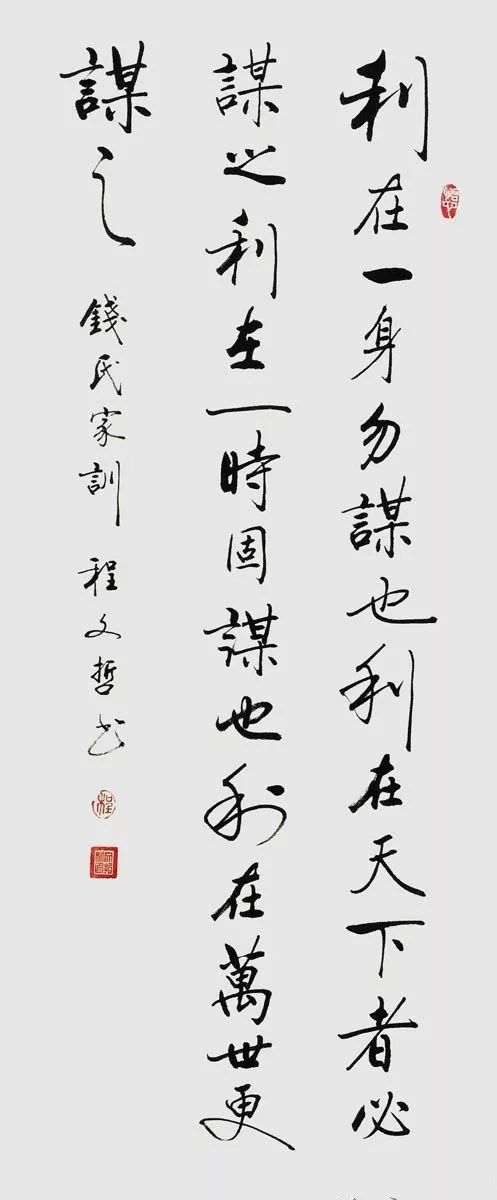 利在一身勿謀也利在天下者必
謀之利在一時固謀也利在萬世更
謀之
錢氏家訓 程文哲书
程